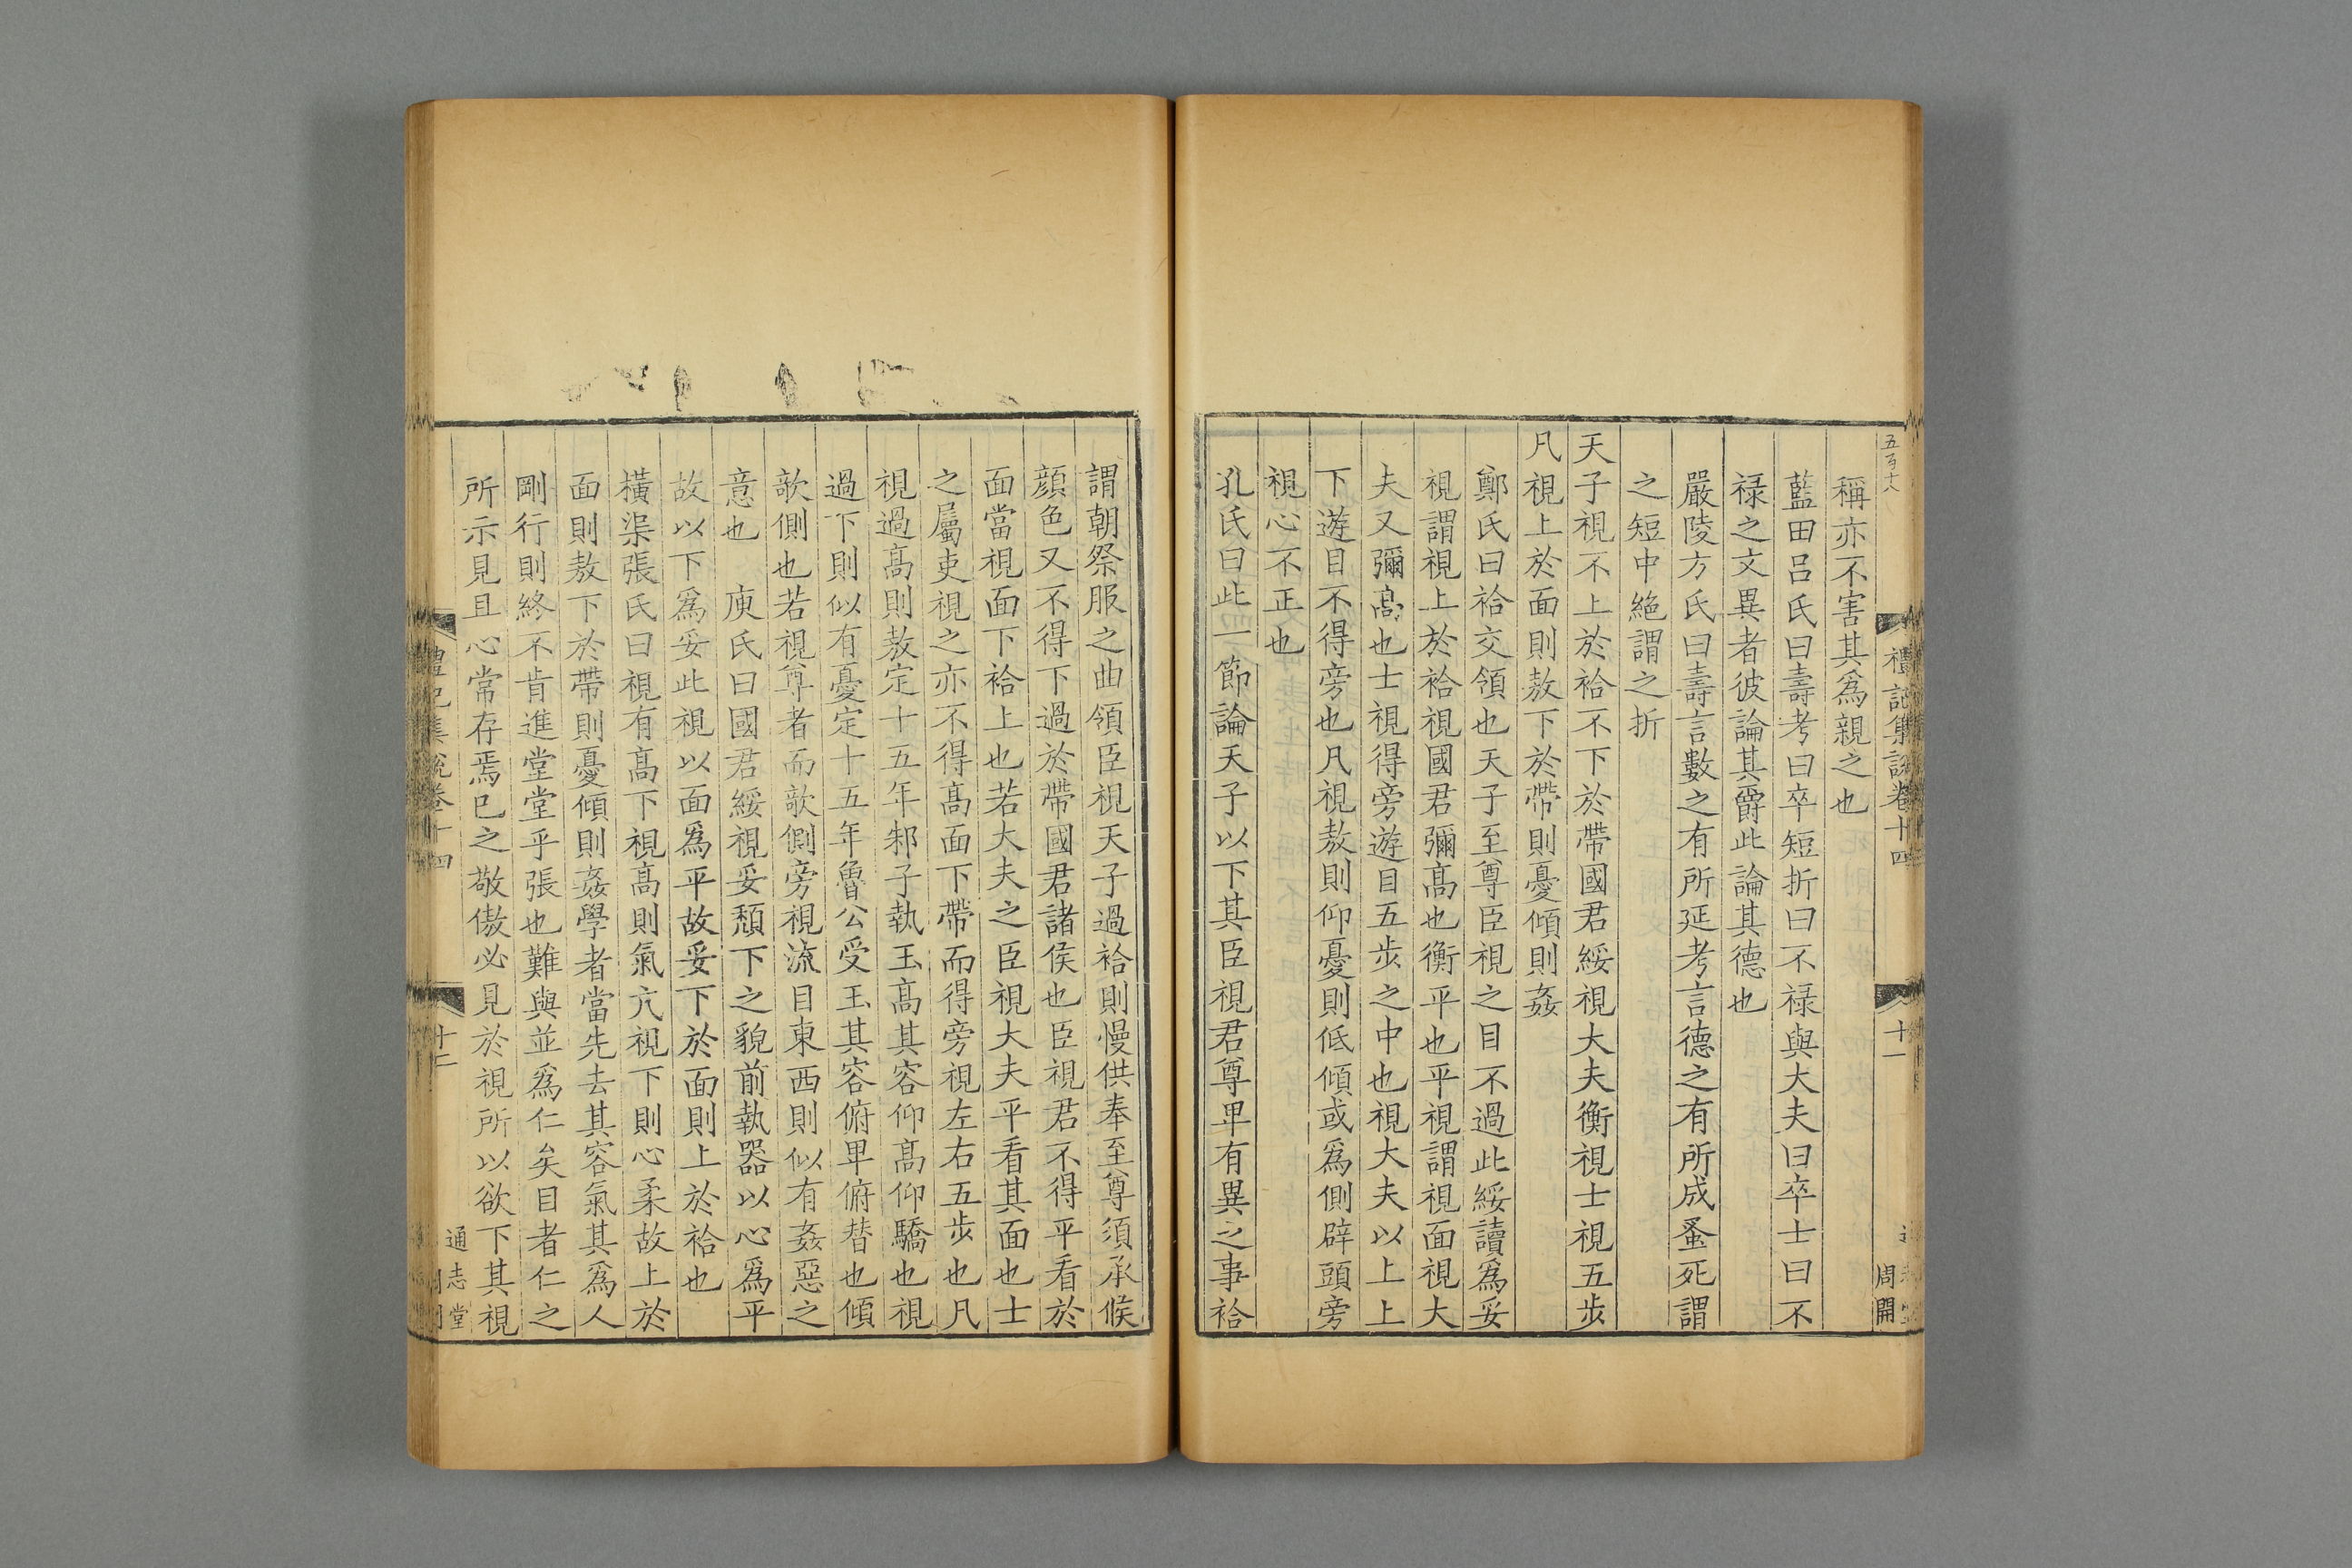 五百十八
禮記集説卷十四
十一
周開
稱亦不害其為親之也
藍田呂氏曰壽考曰卒短折曰不禄與大夫曰卒士曰不
禄之文異者彼論其爵此論其德也
嚴陵方氏曰壽言數之有所延考言德之有所成蚤死謂
之短中絶謂之折
天子視不上於袷不下於帶國君綏視大夫衡視士視五步
凡視上於面則敖下於帶則憂傾則姦
鄭氏曰袷交領也天子至尊臣視之目不過此綏讀爲妥
視謂視上於袷視國君彌髙也衡平也平視謂視面視大
夫又彌髙也士視得旁遊目五步之中也視大夫以上上
下遊目不得旁也凡視敖則仰憂則低傾或爲側辟頭旁
視心不正也
孔氏曰此一節論天子以下其臣視君尊卑有異之事袷
謂朝祭服之曲領臣視天子過袷則慢供奉至尊須承候
顔色又不得下過於帶國君諸侯也臣視君不得平看於
面當視面下袷上也若大夫之臣視大夫平看其面也士
之屬吏視之亦不得髙面下帶而得旁視左右五步也凡
視過髙則敖定十五年邾子執玉髙其容仰髙仰驕也視
過下則似有憂定十五年魯公受玉其容俯卑俯替也傾
欹側也若視尊者而欹側旁視流目東西則似有姦惡之
意也　庾氏曰國君綏視妥頽下之貌前執器以心爲平
故以下爲妥此視以面爲平故妥下於面則上於袷也
橫渠張氏曰視有髙下視髙則氣亢視下則心柔故上於
面則敖下於帶則憂傾則姦學者當先去其容氣其爲人
剛行則終不肯進堂堂乎張也難與並爲仁矣目者仁之
所示見且心常存焉已之敬傲必見於視所以欲下其視
禮記集説卷十四
十二
通志堂